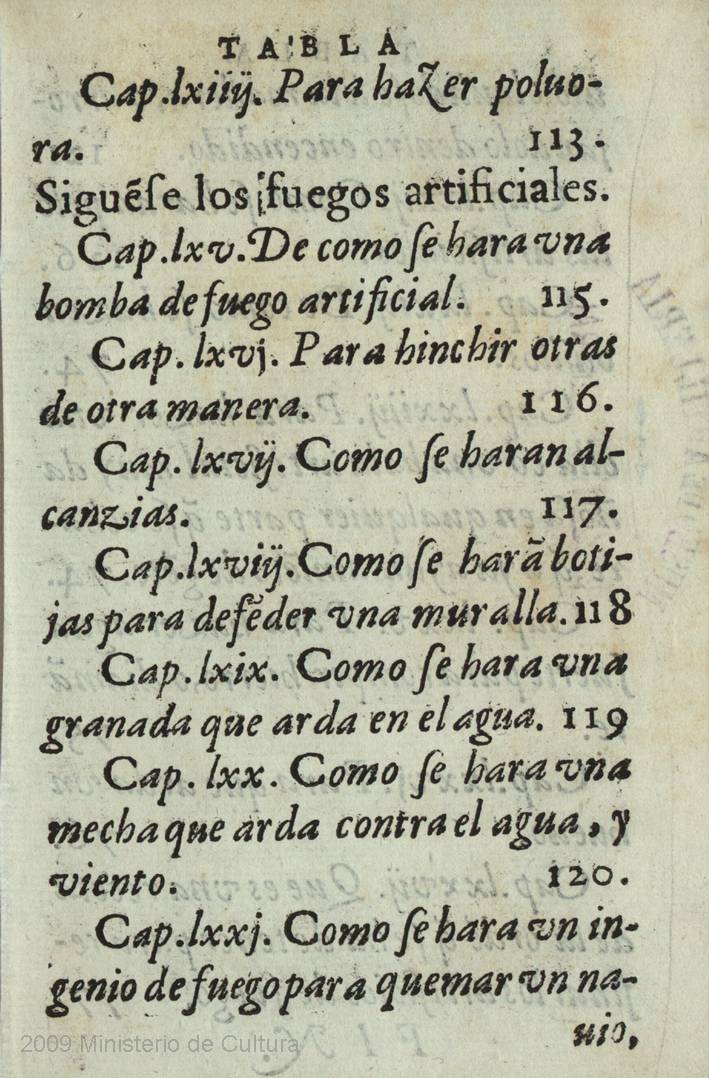 TABLA
Cap.lxiiij. Para hazer poluo-
ra. 113.
Siguẽſe los fuegos artificiales.
Cap.lxv.De como ſe hara vna
bomba de fuego artificial. 115.
Cap. lxvj. Para hinchir otras
de otra manera. 116.
Cap. lxvij. Como ſe haran al-
canzias. 117.
Cap.lxviij.Como ſe harã boti-
jas para defẽder vna muralla. 118
Cap. lxix. Como ſe hara vna
granada que arda en el agua. 119
Cap. lxx. Como ſe hara vna
mecha que arda contra el agua, y
viento. 120.
Cap.lxxj. Como ſe hara vn in-
genio de fuego para quemar vn na-
uio,
2009 Ministerio de Cultura